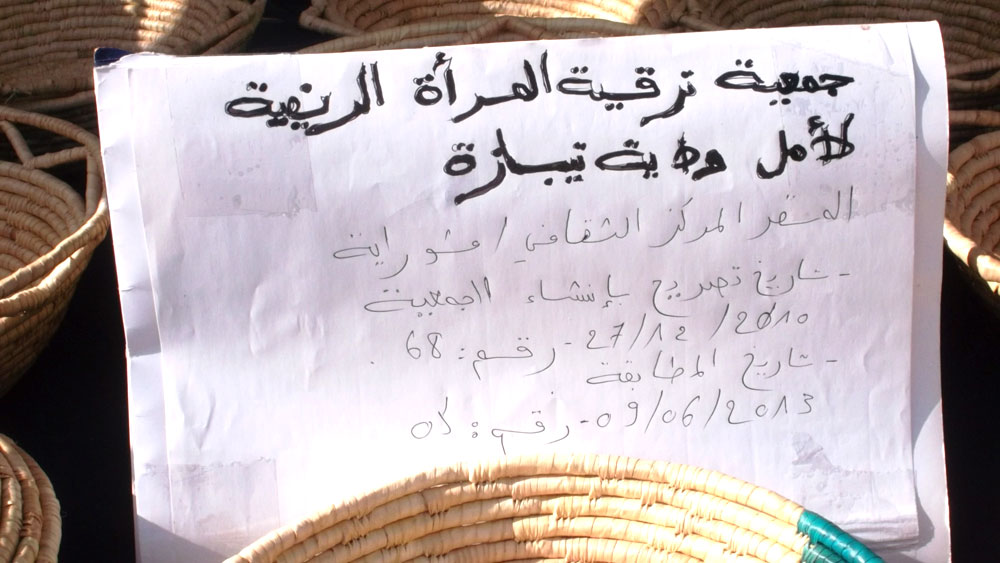 جمعية ترقية المرأة الريفية
لأمل ولاية تيبازة
المقر المركز الثقافي / مشوراية
- تاريخ تصريح بإنشاء الجمعية
27/12/2010 - رقم: 68.
- تاريخ المطابقة
09/06/2013 - رقم: